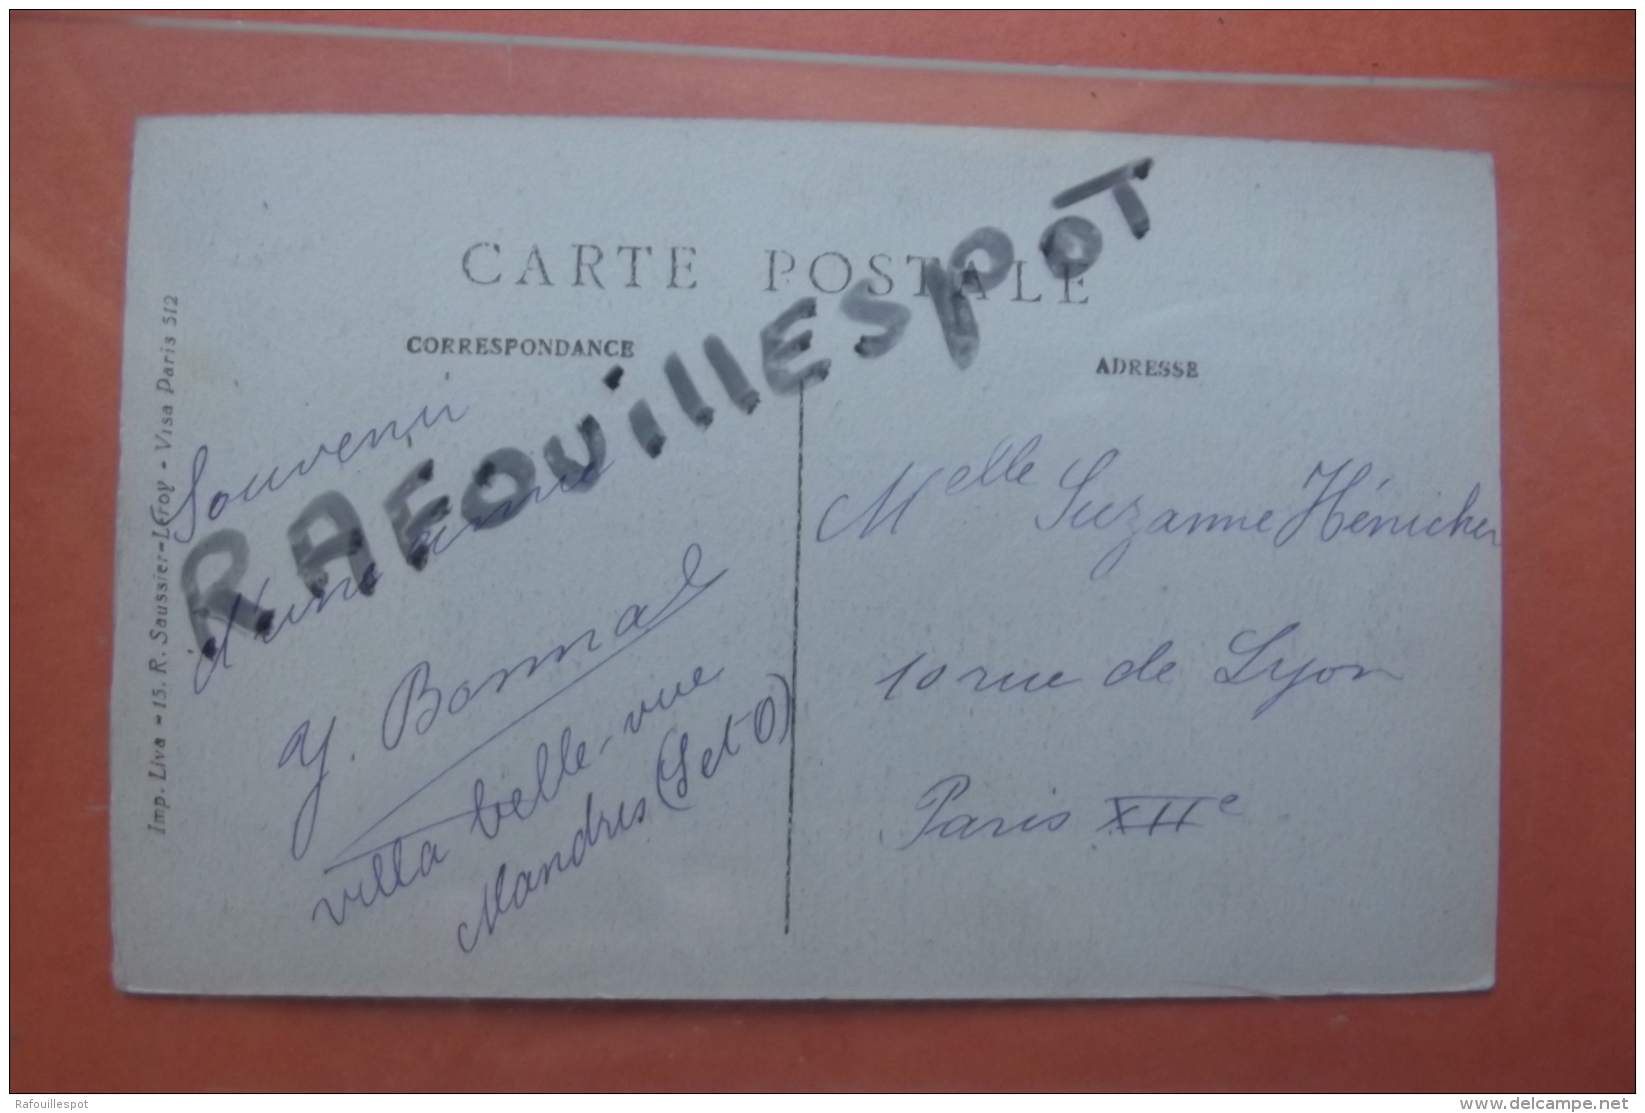 CARTE POSTALE
CORRESPONDANCE
ADRESSE
Imp. Liva - 15, R. Saussier-Leroy - Visa Paris 512
RAFOUILLESPOT
Souvenir
d'une amie
Y. Bonnal
villa belle-vue
Mandres (S et O)
Melle Suzanne Hénicher
10 rue de Lyon
Paris XIIe
Rafouillespot
delcampe.net